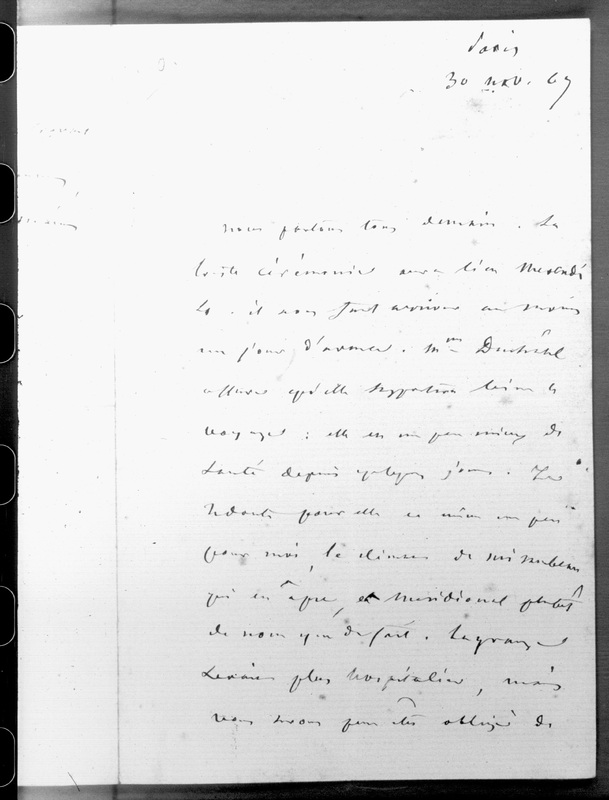 Paris
30 nov. 67
nous partons tous demain. La
triste cérémonie aura lieu Mercredi
4. il nous faut arriver au moins
un jour d'avance. Mme Duchâtel
assure qu'elle supportera bien le
voyage ; elle est un peu mieux de
santé depuis quelques jours. Je
redoute pour elle et même un peu
pour moi, le climat de Mirambeau
qui est âpre, et Méridional plutôt
de nom que de fait. Lagrange
serait plus hospitalier, mais
nous serons peut être obligés de